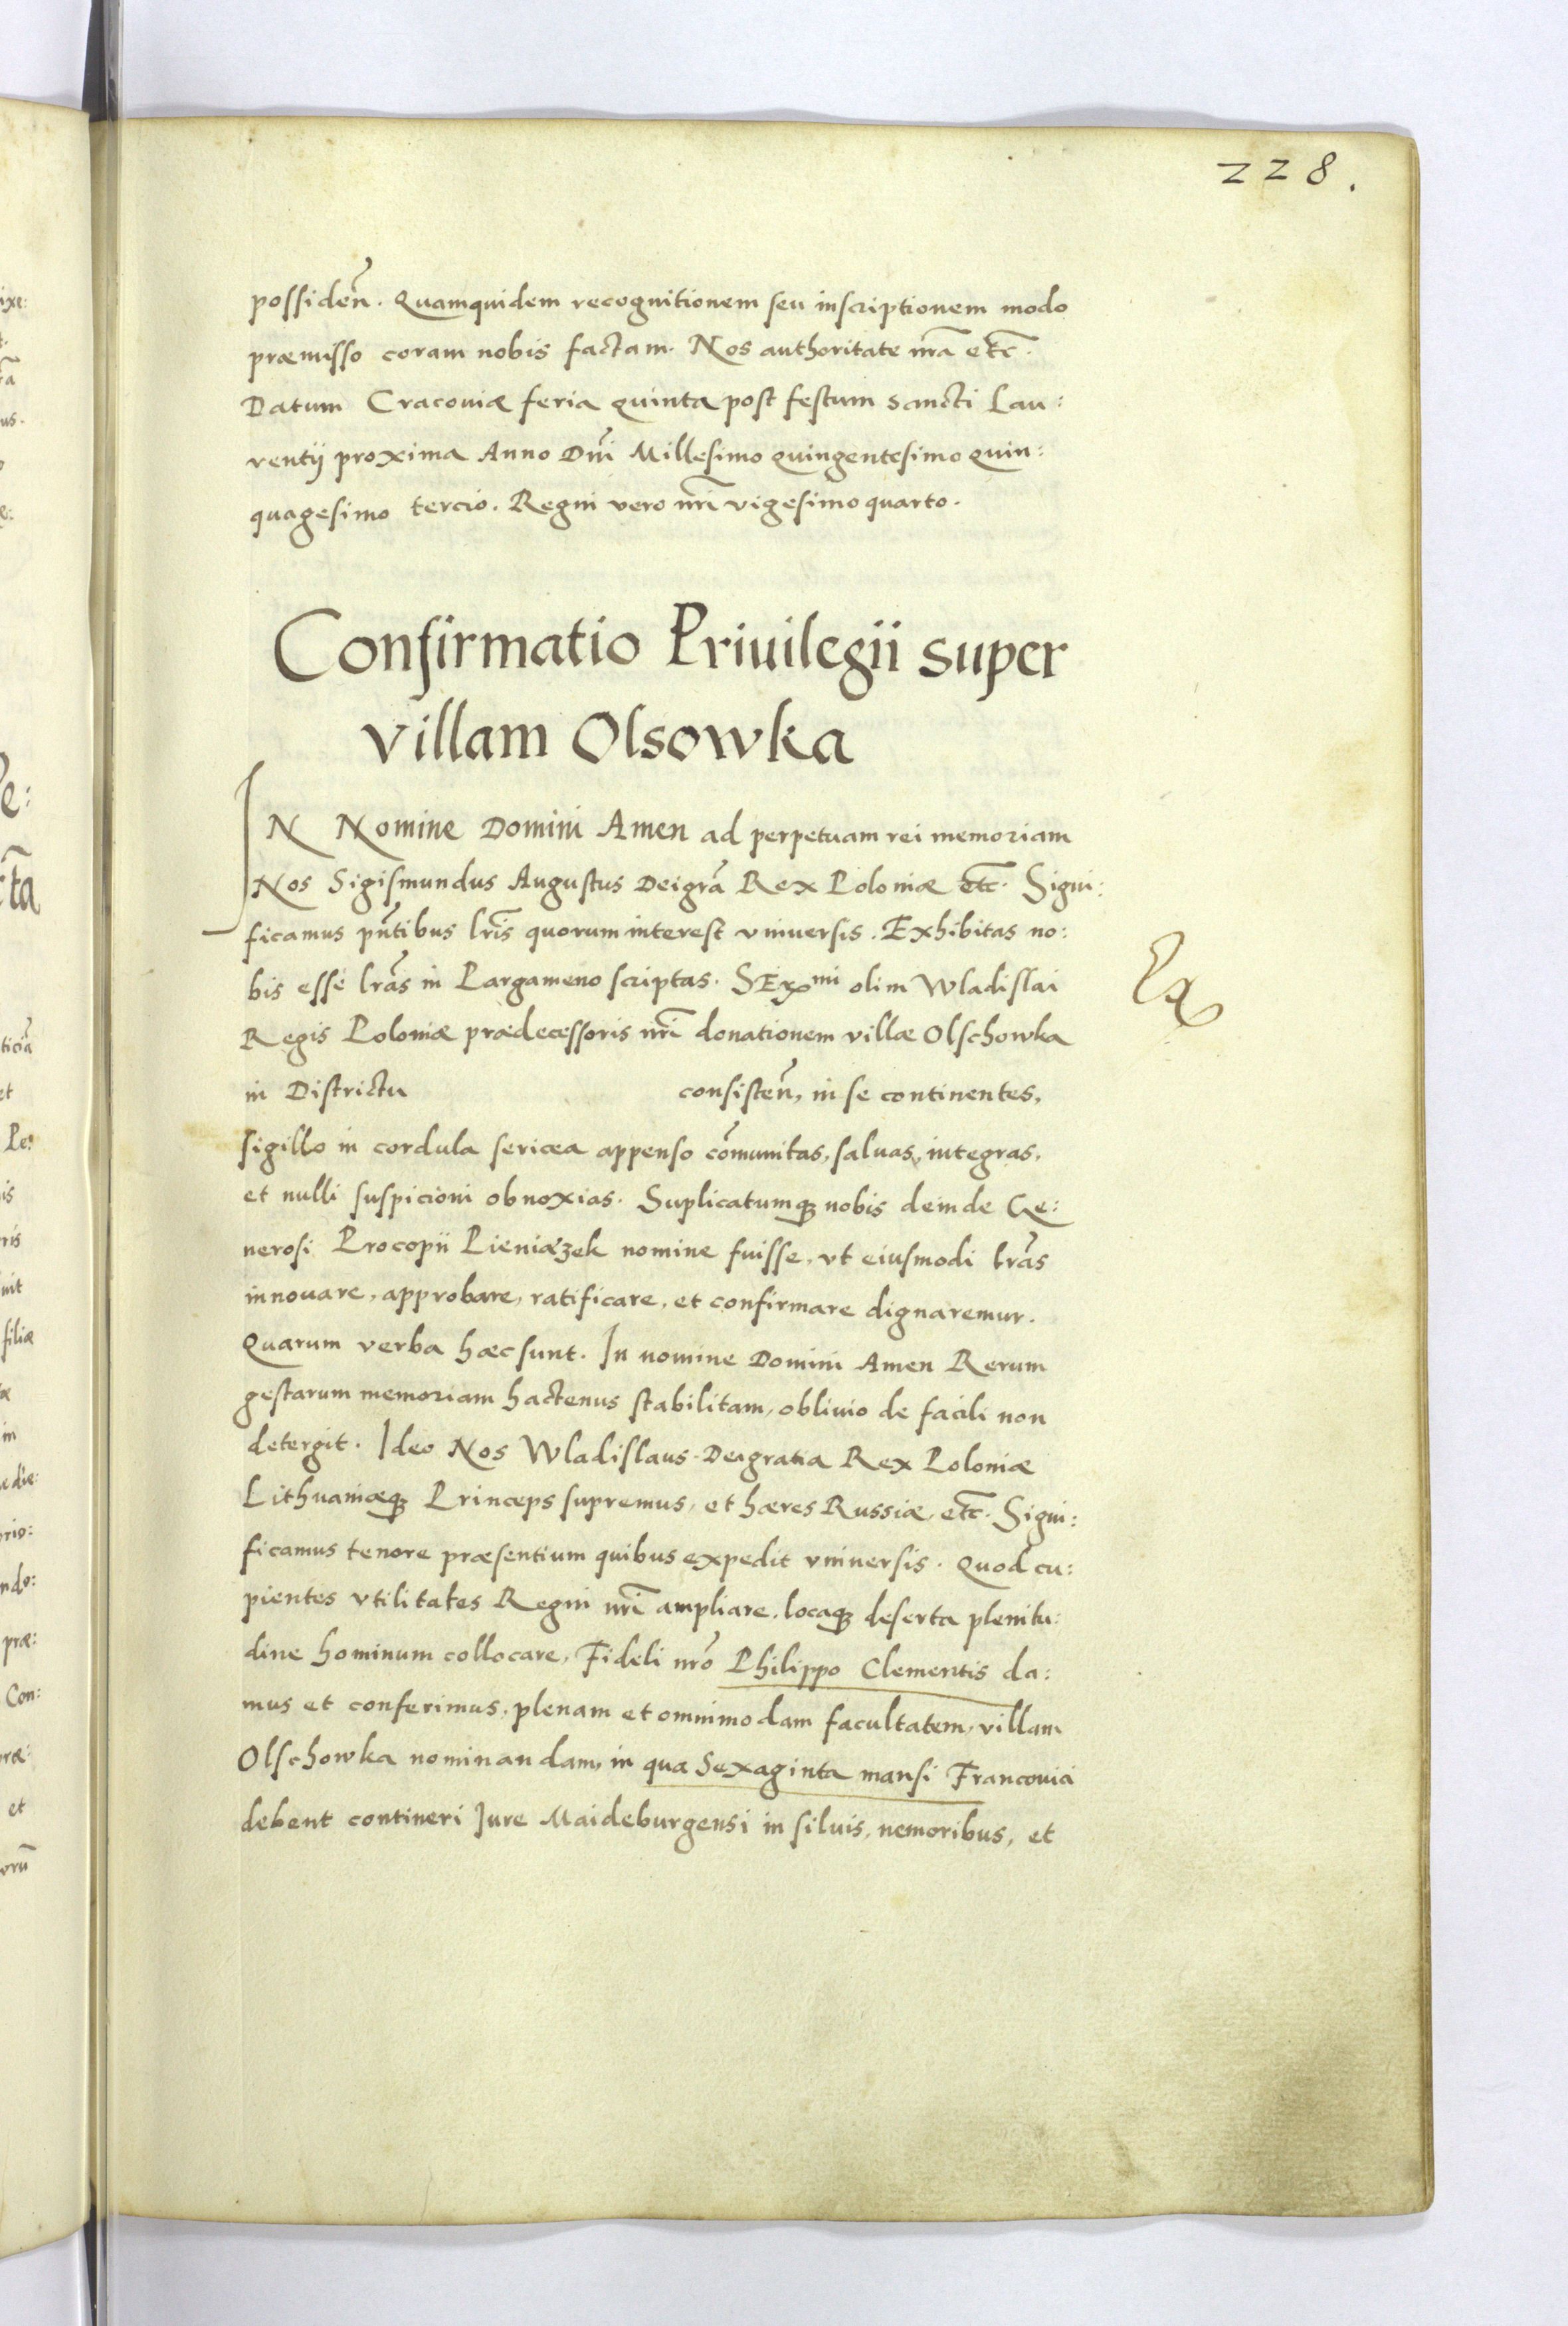 228.
possideñ. Quamquidem recognitionem seu inscriptionem modo
præmisso coram nobis factam. Nos authoritate nr̃a etc̃.
Datum Cracouiæ feria quinta post festum sancti Lau:
rentij proxima Anno Dñi Millesimo quingentesimo quin:
quagesimo tercio. Regni vero nr̃i vigesimo quarto.
Confirmatio Priuilegii super
villam Olsowka
IN Nomine Domini Amen ad perpetuam rei memoriam
Nos Sigismundus Augustus Deigr̃a Rex Poloniæ etc̃. Signi:
ficamus pñtibus lr̃is quorum interest vniuersis. Exhibitas no:
bis esse lr̃as in Pargameno scriptas. olim Wladislai
Regis Poloniæ prædecessoris nr̃i donationem villæ Olschowka
in Districtu consisteñ, in se continentes,
sigillo in cordula sericea appenso cõmunitas, saluas, integras,
et nulli suspicioni obnoxias. Suplicatumq3 nobis deinde Ge:
nerosi Procopii Pieniązek nomine fuisse, vt eiusmodi lr̃as
innouare, approbare, ratificare, et confirmare dignaremur.
Quarum verba hæc sunt. In nomine Domini Amen Rerum
gestarum memoriam hactenus stabilitam, obliuio de facili non
detergit. Ideo Nos Wladislaus Deigratia Rex Poloniæ
Lithuaniæq3 Princeps supremus, et hæres Russiæ, etc̃. Signi:
ficamus tenore præsentium quibus expedit vniuersis. Quod cu:
pientes vtilitates Regni nr̃i ampliare, locaq3 deserta plenitu:
dine hominum collocare, Fideli nr̃o Philippo Clementis da:
mus et conferimus, plenam et omnimodam facultatem, villam
Olschowka nominandam, in qua Sexaginta mansi Franconici
debent contineri Jure Maideburgensi in siluis, nemoribus, et